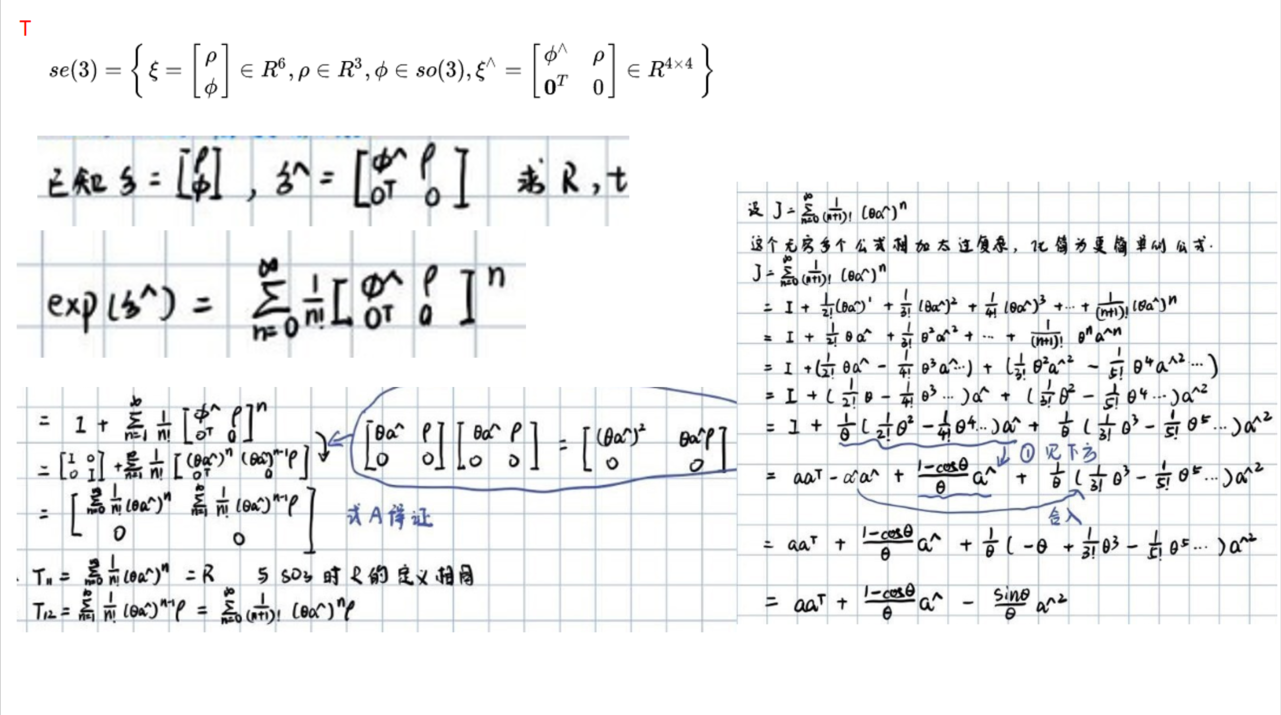 T
se(3) = { ξ = [ρ; ϕ] ∈ R⁶, ρ ∈ R³, ϕ ∈ so(3), ξ^ = [ϕ^ ρ; 0ᵀ 0] ∈ R⁴ˣ⁴ }
已知 ξ = [ρ; ϕ] , ξ^ = [ϕ^ ρ; 0ᵀ 0] 求 R, t
exp(ξ^) = ∑_{n=0}^{∞} 1/n! [ϕ^ ρ; 0ᵀ 0]ⁿ
= I + ∑_{n=1}^{∞} 1/n! [ϕ^ ρ; 0ᵀ 0]ⁿ
[θa^ ρ; 0 0] [θa^ ρ; 0 0] = [(θa^)² θa^ρ; 0 0]
= [I 0; 0 I] + ∑_{n=1}^{∞} 1/n! [(θa^)ⁿ (θa^)ⁿ⁻¹ρ; 0ᵀ 0]
= [∑_{n=0}^{∞} 1/n! (θa^)ⁿ ∑_{n=1}^{∞} 1/n! (θa^)ⁿ⁻¹ρ; 0 0]
式A详证
T₁₁ = ∑_{n=0}^{∞} 1/n! (θa^)ⁿ = R 与 SO3 时 R的定义相同
T₁₂ = ∑_{n=1}^{∞} 1/n! (θa^)ⁿ⁻¹ρ = ∑_{n=0}^{∞} 1/(n+1)! (θa^)ⁿρ
设 J = ∑_{n=0}^{∞} 1/(n+1)! (θa^)ⁿ
这个无穷多个公式相加太过复杂，化简为更简单的公式.
J = ∑_{n=0}^{∞} 1/(n+1)! (θa^)ⁿ
= I + 1/2! (θa^)¹ + 1/3! (θa^)² + 1/4! (θa^)³ + ... + 1/(n+1)! (θa^)ⁿ
= I + 1/2! θa^ + 1/3! θ²a^² + ... + 1/(n+1)! θⁿa^ⁿ
= I + (1/2! θa^ - 1/4! θ³a^...) + (1/3! θ²a^² - 1/5! θ⁴a^²...)
= I + (1/2! θ - 1/4! θ³...)a^ + (1/3! θ² - 1/5! θ⁴...)a^²
= I + 1/θ (1/2! θ² - 1/4! θ⁴...)a^ + 1/θ (1/3! θ³ - 1/5! θ⁵...)a^²
① 见下方
= aaᵀ - a^a^ + (1-cosθ)/θ a^ + 1/θ (1/3! θ³ - 1/5! θ⁵...)a^²
合入
= aaᵀ + (1-cosθ)/θ a^ + 1/θ (-θ + 1/3! θ³ - 1/5! θ⁵...)a^²
= aaᵀ + (1-cosθ)/θ a^ - sinθ/θ a^²